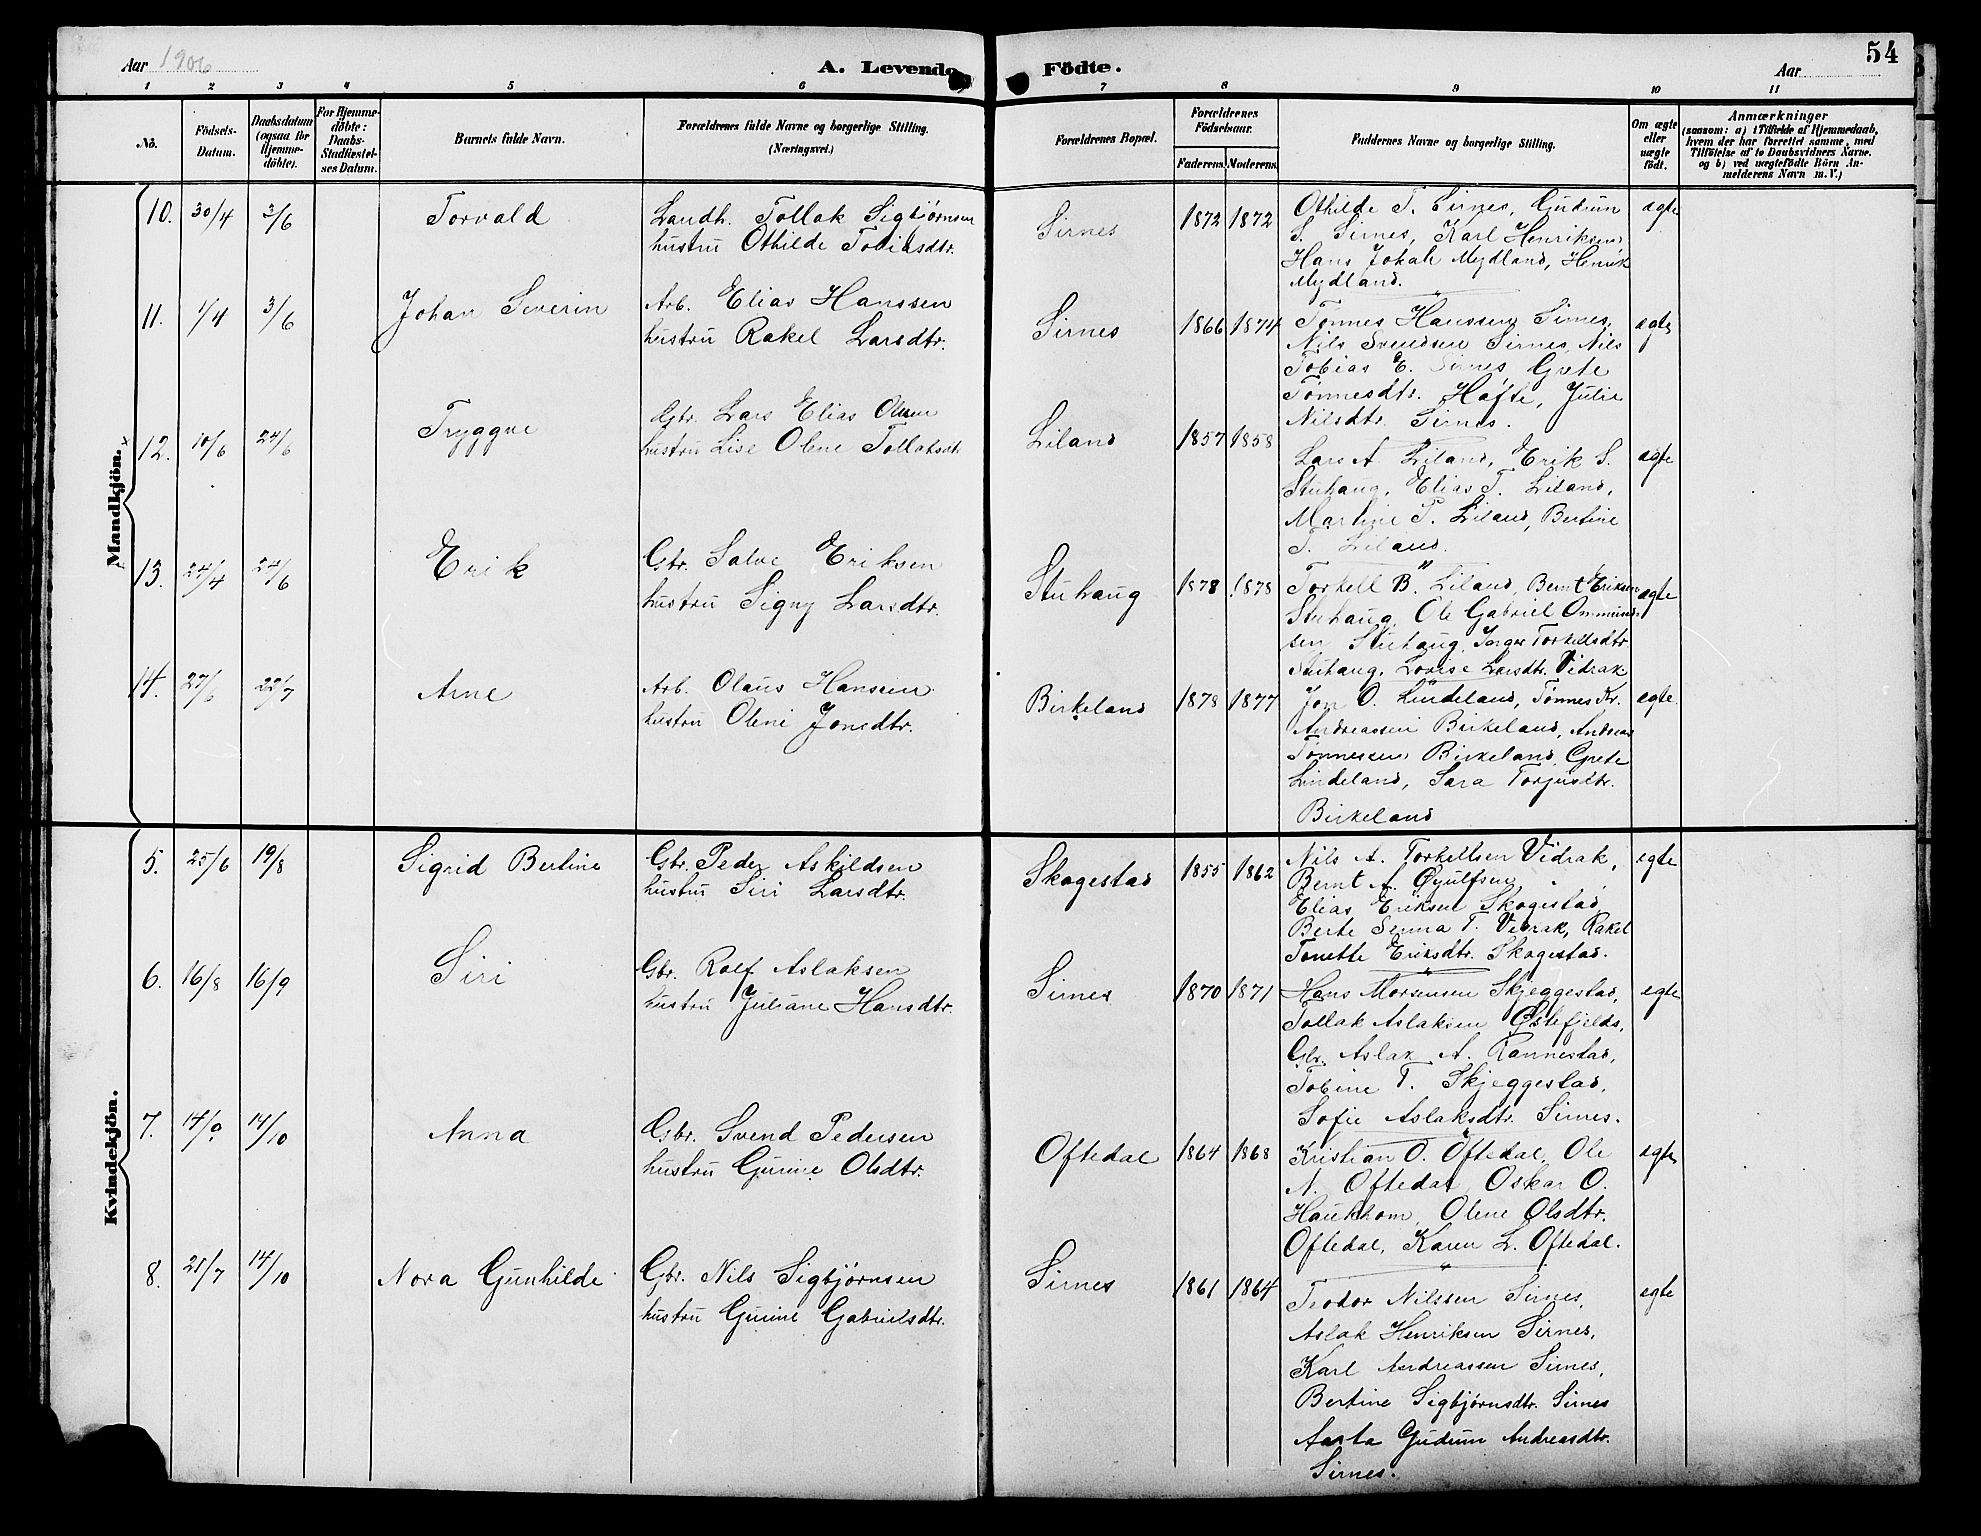 Aar 1906
A. Levende Födte.
Aar
54
1 2 3 4 5 6 7 8 9 10 11
No.
Födsels-Datum.
Daabsdatum (ogsaa for Hjemme-döbte).
For Hjemme-döbte: Daabs-Stadfæstel-ses Datum.
Barnets fulde Navn.
Forældrenes fulde Navne og borgerlige Stilling. (Næringsvei.)
Forældrenes Bopæl.
Forældrenes Födselsaar.
Faderens. Moderens.
Faddernes Navne og borgerlige Stilling.
Om ægte eller uægte födt.
Anmærkninger
(saasom: a) i Tilfælde af Hjemmedaab,
hvem der har forrettet samme, med
Tilföielse af to Daabsvidners Navne.
og b) ved uægtefödte Börn An-
melderens Navn m. V.)
Mandkjön.
10. 30/4 3/6 Torvald
Landh. Tollak Sigbjørnsen
hustru Othilde Tobiasdtr.
Sirnes 1872 1872
Othilde T. Sirnes, Gudrun
S. Sirnes, Karl Henriksen,
Hans Jokab Mydland, Henrik
Mydland.
ægte
11. 1/4 3/6 Johan Severin
Arb. Elias Hanssen
hustru Rakel Larsdtr.
Sirnes 1866 1874
Tønnes Hanssen Sirnes,
Nils Svendsen Sirnes, Nils
Tobias E. Sirnes, Grete
Tønnesdtr. Høfte, Julie
Nilsdtr. Sirnes.
ægte
12. 10/6 24/6 Tryggve
Gbr. Lars Elias Olsen
hustru Lise Olene Tollaksdt.
Liland 1857 1858
Lars A. Liland, Erik S.
Stuhaug, Elias T. Liland,
Martine T. Liland, Bertine
T. Liland.
ægte
13. 24/4 24/6 Erik
Gbr. Salve Eriksen
hustru Signy Larsdtr.
Stuhaug 1878 1878
Torkell B. Liland, Bernt Eriksen
Stuhaug, Ole Gabriel Ommund-
sen Stuhaug, Inger Torkellsdtr.
Stuhaug, Lovise Larsdtr. Vidrak
ægte
14. 27/6 22/7 Arne
Arb. Olaus Hansen
hustru Olene Jonsdtr.
Birkeland 1878 1877
Jon O. Lindeland, Tønnes Kr.
Andreassen Birkeland, Andreas
Tønnessen Birkeland, Grete
Lindeland, Sara Torjusdtr.
Birkeland
ægte
Kvindekjön.
5. 25/6 19/8 Sigrid Bertine
Gbr. Peder Askildsen
hustru Siri Larsdtr.
Skogestad 1855 1862
Nils A. Torkellsen Vidrak,
Bernt A. Øyulfsen "
Elias Eriksen Skogestad,
Berte Serina T. Vidrak, Rakel
Tonette Eriksdtr. Skogestad.
egte
6. 16/8 16/9 Siri
Gbr. Rolf Aslaksen
hustru Juliane Hansdtr.
Sirnes 1870 1871
Hans Morsensen Skjeggestad,
Tollak Aslaksen Østefjelds,
Gbr. Aslak A. Rannestad,
Tobine T. Skjeggestad,
Sofie Aslaksdtr. Sirnes.
egte
7. 14/9 14/10 Anna
Gbr. Svend Pedersen
hustru Gurine Olsdtr.
Oftedal 1864 1868
Kristian O. Oftedal, Ole
N. Oftedal, Oskar O.
Haukhom, Olene Olsdtr.
Oftedal, Karen L. Oftedal.
egte
8. 21/7 14/10 Nora Gunhilde
Gbr. Nils Sigbjørnsen
hustru Gurine Gabrielsdtr.
Sirnes 1861 1864
Teodor Nilssen Sirnes,
Aslak Henriksen Sirnes,
Karl Andreassen Sirnes,
Bertine Sigbjørnsdtr. Sirnes
Aasta Gudrun Andreasdtr.
Sirnes.
egte